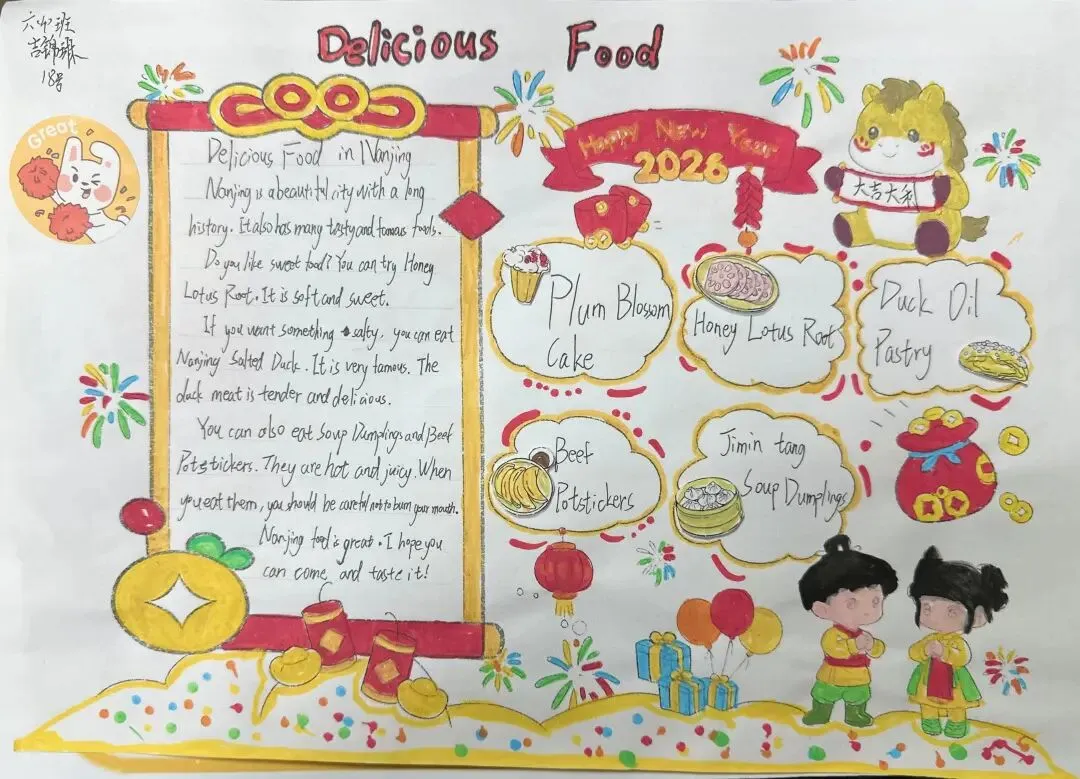 六(4)班
吉锦琳
18号
Delicious Food
Great
Delicious Food in Nanjing
Nanjing is a beautiful city with a long
history. It also has many tasty and famous foods.
Do you like sweet food? You can try Honey
Lotus Root. It is soft and sweet.
If you want something salty, you can eat
Nanjing Salted Duck. It is very famous. The
duck meat is tender and delicious.
You can also eat Soup Dumplings and Beef
Potstickers. They are hot and juicy. When
you eat them, you should be careful not to burn your mouth.
Nanjing food is great. I hope you
can come and taste it!
Happy New Year
2026
大吉大利
Plum Blossom
Cake
Honey Lotus Root
Duck Oil
Pastry
Beef
Potstickers
Jimin tang
Soup Dumplings